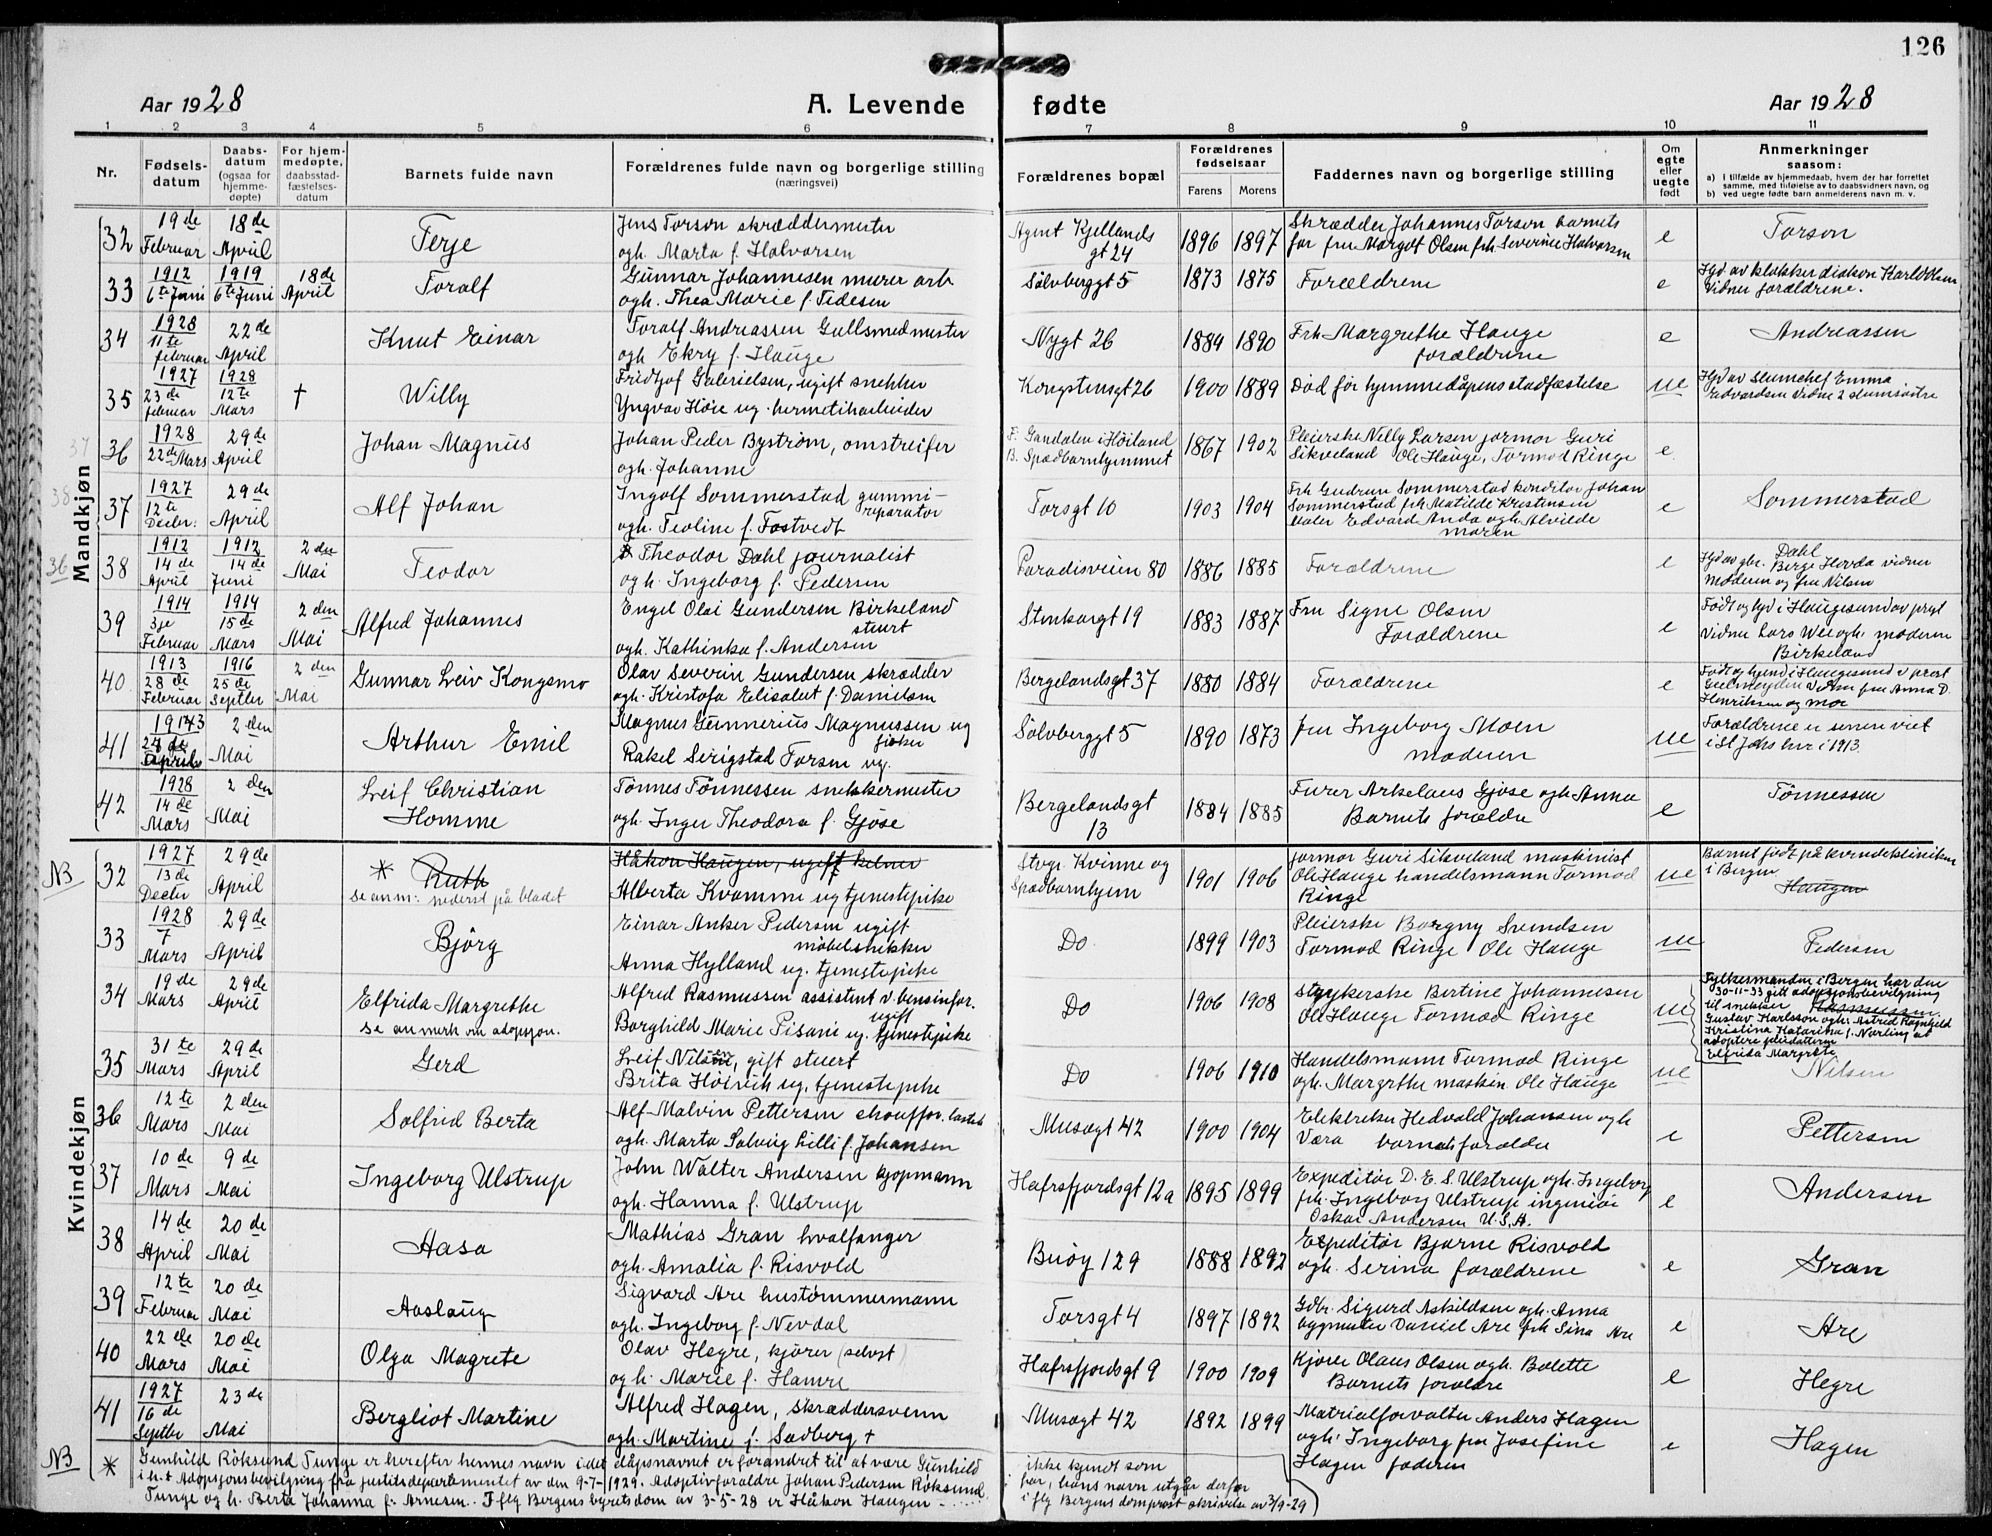 126
Aar 1928
A. Levende fødte
Aar 1928
1 2 3 4 5 6 7 8 9 10 11
Nr.
Fødselsdatum
Daabsdatum (ogsaa for hjemmedøpte)
For hjemmedøpte, daabsstadfæstelsesdatum
Barnets fulde navn
Forældrenes fulde navn og borgerlige stilling (næringsvei)
Forældrenes bopæl
Forældrenes fødselsaar
Farens Morens
Faddernes navn og borgerlige stilling
Om egte eller uegte født
Anmerkninger saasom:
a) I tilfælde av hjemmedaab, hvem der har forrettet samme, med tilføielse av to daabsvidners navn, og
b) ved uegte fødte barn anmelderens navn m. v.
Mandkjøn
32 19de Februar 18de April Terje Jens Torson skræddermester
ogh. Marta f. Halvorsen
Agent Kjellands gt 24 1896 1897 Skrædder Johannes Torson barnets
far fru Margot Olsen frk Severine Halvorsen e Torson
33 1912 6te Juni 1919 6te Juni 18de April Toralf Gunnar Johannesen murer arb
ogh. Thea Marie f. Tedesen
Sølvberggt 5 1873 1875 Forældrene e Hjd av klokker diakon Karl
Vidner forældrene.
34 1928 11te februar 22de April Knut Einar Toralf Andreassen Gullsmedmester
ogh Ekry f. Hauge
Nygt 26 1884 1890 Frk Margrethe Hauge
forældrene e Andreassen
35 1927 23de februar 1928 12te Mars † Willy Fridtjof Gabrielsen, ugift snekker
Yngvar Høie ug. hermetikarbeider
Kongstensgt 26 1900 1889 Død før hjemmedåpens stadfæstelse ue Hjd av slumchef Emma
Edvardsen vidne 2 slumsøstre
37
36 1928 22de Mars 29de April Johan Magnus Johan Peder Byström, omstreifer
ogh. Johanne
F. Gandalen i Høiland
B. Spædbarnhjemmet 1867 1902 Pleierske Nelly Larsen jormor Guri
Sikveland Ole Hauge, Tormod Ringe e
38
37 1927 12te Decbr: 29de April Alf Johan Ingolf Sommerstad gummi-
reparatør
ogh. Teoline f. Tostvedt
Torsgt 10 1903 1904 Frk Gudrun Sommerstad konditor Johan
Sommerstad frk Matilde Kristensen
Maler Edvard Anda ogh. Alvilde
moren e Sommerstad
36
38 1912 14de April 1912 14de Juni 2den Mai Teodor Theodor Dahl journalist
ogh. Ingeborg f. Pedersen
Paradisveien 80 1886 1885 Forældrene e Dahl
Hjd av gbr. Berge Hovda vidner
Moderen og fru Nilsen
39 1914 3je Februar 1914 15de Mars 2den Mai Alfred Johannes Engel Olai Gundersen Birkeland
stuert
ogh. Kathinka f. Andersen
Stenkargt 19 1883 1887 Fru Signe Olsen
Forældrene e Født og hjd i Haugesund av prgt
Vidner Lars Wee ogh. moderen
Birkeland
40 1913 28de Februar 1916 25de Septbr 2den Mai Gunnar Leiv Kongsmo Olav Severin Gundersen skrædder
ogh. Kristofa Elisabet f. Danielsen
Bergelandsgt 37 1880 1884 Forældrene e Født og hjend i Haugesund v prest
Geelmuyden Vidner fru Anna D.
Henriksen og mor
41 1913 24de April 2den Mai Arthur Emil Magnus Gunnerius Magnussen ug
fisker
Rakel Serigstad Torsen ug.
Sølvberggt 5 1890 1873 fru Ingeborg Moen
moderen ue Forældrene er senere viet
i St Johs her i 1913.
42 1928 14de Mars 2den Mai Leif Christian
Homme Tønnes Tønnessen snekkermester
ogh. Inger Theodora f. Gjøse
Bergelandsgt 13 1884 1885 Furer Arkelaus Gjøse ogh Anna
Barnets forældre e Tønnessen
Kvindekjøn
NB 32 1927 13de Decbr 29de April * Ruth
se anm: nederst på bladet
Håkon Haugen, ugift kelner
Alberta Kvamme ug tjenestepike
Stvgr Kvinne og
Spædbarnhjem 1901 1906 jormor Guri Sikveland maskinist
Ole Hauge handelsmann Tormod
Ringe ue Barnet født på kvindekliniken
i Bergen
Haugen
33 1928 7 Mars 29de April Bjørg Einar Anker Pedersen ugift
møbelsnikker
Anna Hylland ug. tjenestepike
Do 1899 1903 Pleierske Borgny Svendsen
Tormod Ringe Ole Hauge ue Pedersen
34 19de Mars 29de April Elfrida Margrethe
se anmerk om adopsjon.
Alfred Rasmussen assistent v. bensinfor.
ugift
Borghild Marie Pisani ug. tjenestepike
Do 1906 1908 Strykerske Bertine Johannesen
Ole Hauge Tormod Ringe ue Fylkesmanden i Bergen har den
30-11-33 gitt adopsjonsbevilgning
til snekker Rasmussen
Gustav Karlsson ogh. Astrid Ragnhild
Kristina Katarina f. Nørling at
adoptere pleiedatteren
Elfrida Margrete
35 31te Mars 29de April Gerd Leif Nilsen, gift stuert
Brita Høivik ug. tjenestepike
Do 1906 1910 Handelsmann Tormod Ringe
ogh. Margrethe maskin. Ole Hauge ue Nilsen
36 12te Mars 2den Mai Solfrid Berta Alf Malvin Pettersen chouffør. lastebl
ogh. Marta Solveig Lilli f. Johansen
Musegt 42 1900 1904 Elektriker Hedvald Johansen ogh
Væra barnets forældre e Pettersen
37 10de Mars 9de Mai Ingeborg Ulstrup John Walter Andersen kjøpmann
ogh. Hanna f. Ulstrup
Hafrsfjordsgt 12a 1895 1899 Expeditør D. E. S. Ulstrup ogh. Ingeborg
frk. Ingeborg Ulstrup ingeniør
Oskar Andersen U.S.A. e Andersen
38 14de April 20de Mai Aasa Mathias Gran hvalfanger
ogh. Amalia f. Risvold
Buøy 129 1888 1892 Expeditør Bjarne Risvold
ogh. Serina forældrene e Gran
39 12te Februar 20de Mai Aaslaug Sigvard Are hustømmermann
ogh. Ingeborg f. Nevdal
Torsgt 4 1897 1892 Gdbr. Sigurd Askildsen ogh. Anna
bygmester Daniel Are frk Sina Are e Are
40 22de Mars 20de Mai Olga Magrete Olav Hegre, kjører (selvst)
ogh. Marie f. Hamre
Hafrsfjordsgt 9 1900 1909 Kjører Olaus Olsen ogh. Bolette
Barnets forældre e Hegre
41 1927 16de Septbr 23de Mai Bergliot Martine Alfred Hagen, skræddersvenn
ogh. Martine f. Sadberg +
Musegt 42 1892 1899 Matrialforvalter Anders Hagen
ogh. Ingeborg fru Josefine
Hagen faderen e Hagen
NB * Gunhild Røksund Tunge er herefter hennes navn idet dåpsnavnet er forandret til at være Gunhild
i h.t. Adopsjonsbevilgning fra justitsdepartementet av den 9-7-1929. Adoptivforældre Johan Pedersen Røksund
Tunge og h. Berta Johanna f. Arnesen. Iflg Bergens byretsdom av 3-5-28 er Håkon Haugen
ikke kjendt som
far, hans navn utgår derfor
iflg Bergens domprost skrivelse av 3/9-29